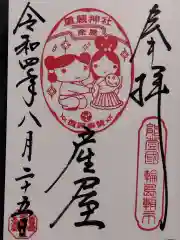 奉拝
重蔵神社
産屋
産屋
能登國
輪島鎮守
令和四年八月二十五日